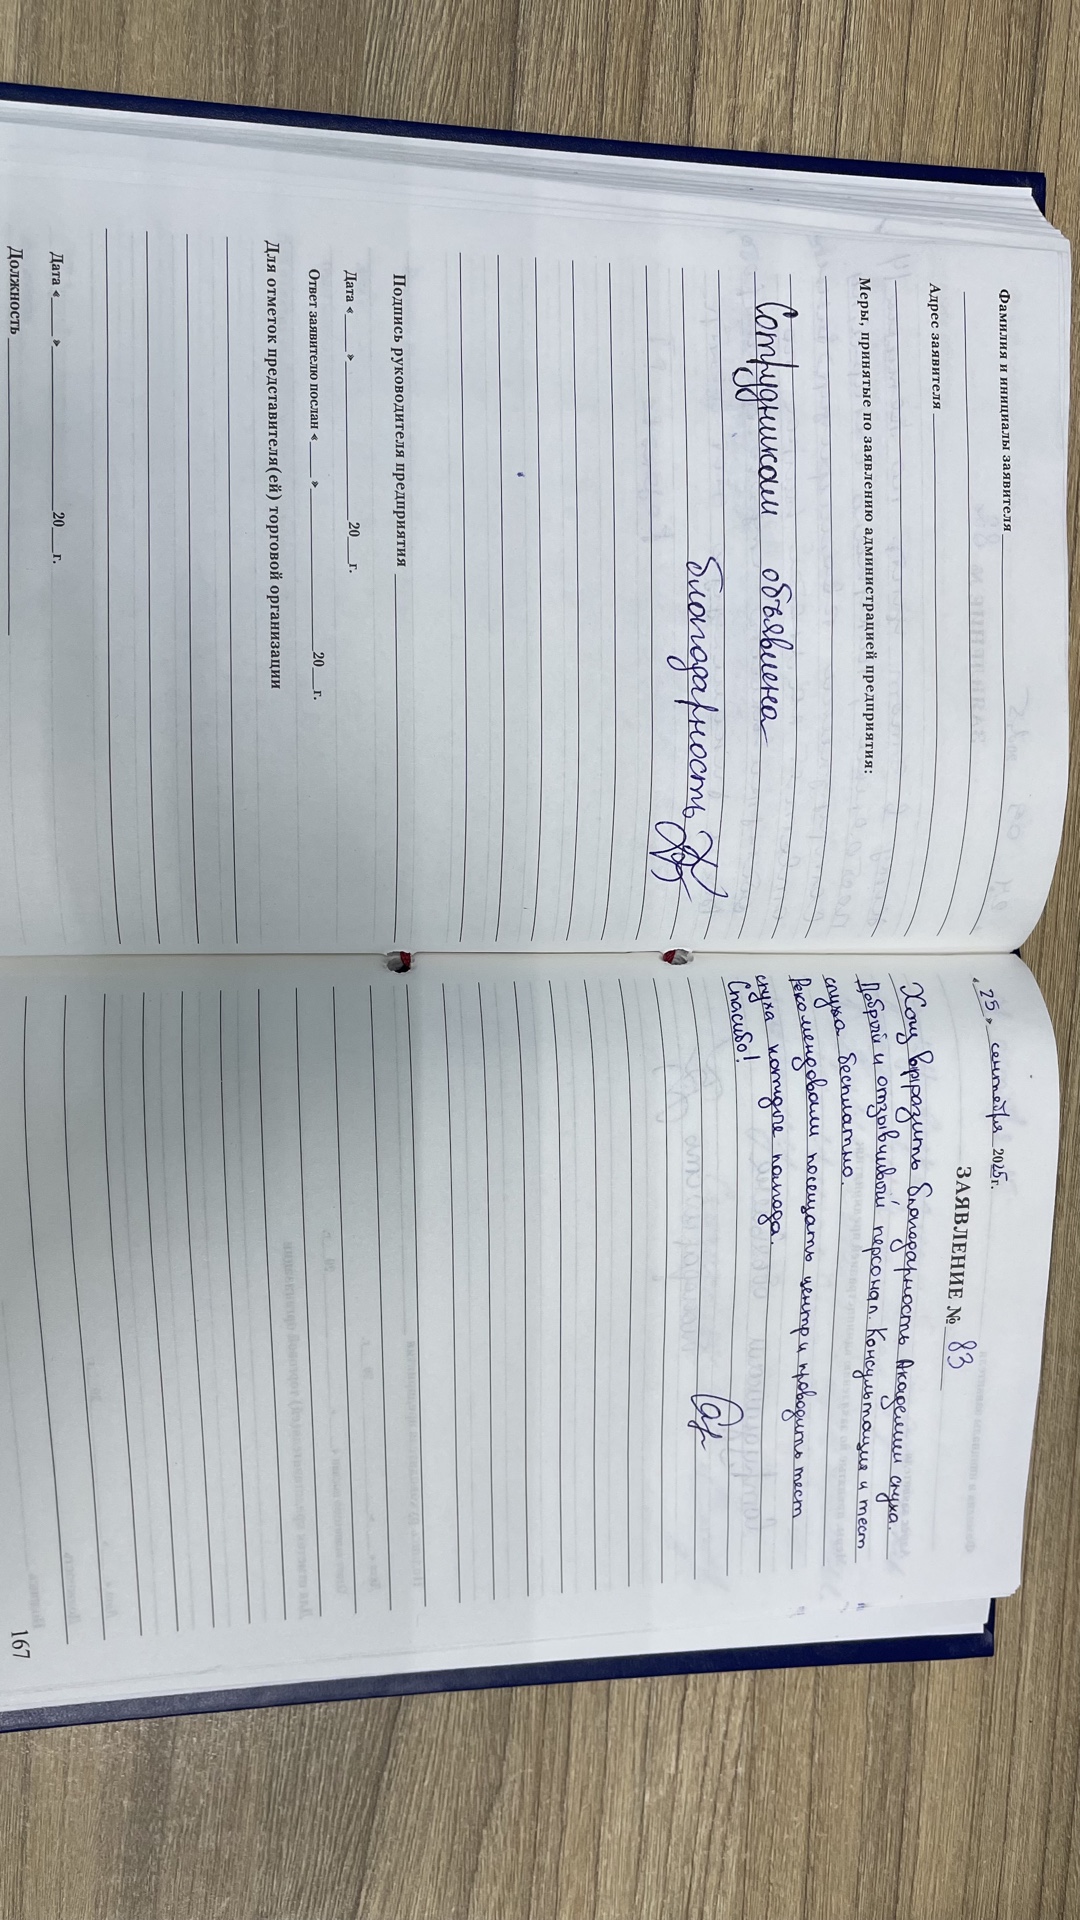 Фамилия и инициалы заявителя
Адрес заявителя
Меры, принятые по заявлению администрацией предприятия:
Сотрудникам объявлена
благодарность
Подпись руководителя предприятия
Дата «___» ___ 20__г.
Ответ заявителю послан «___» ___ 20__г.
Для отметок представителя(ей) торговой организации
Дата «___» ___ 20__г.
Должность
«25» сентября 2025г.
ЗАЯВЛЕНИЕ № 83
Хочу выразить благодарность Академии слуха.
Добрый и отзывчивый персонал. Консультация и тест
слуха бесплатно.
Рекомендовали посещать центр и проводить тест
слуха каждые полгода.
Спасибо!
167